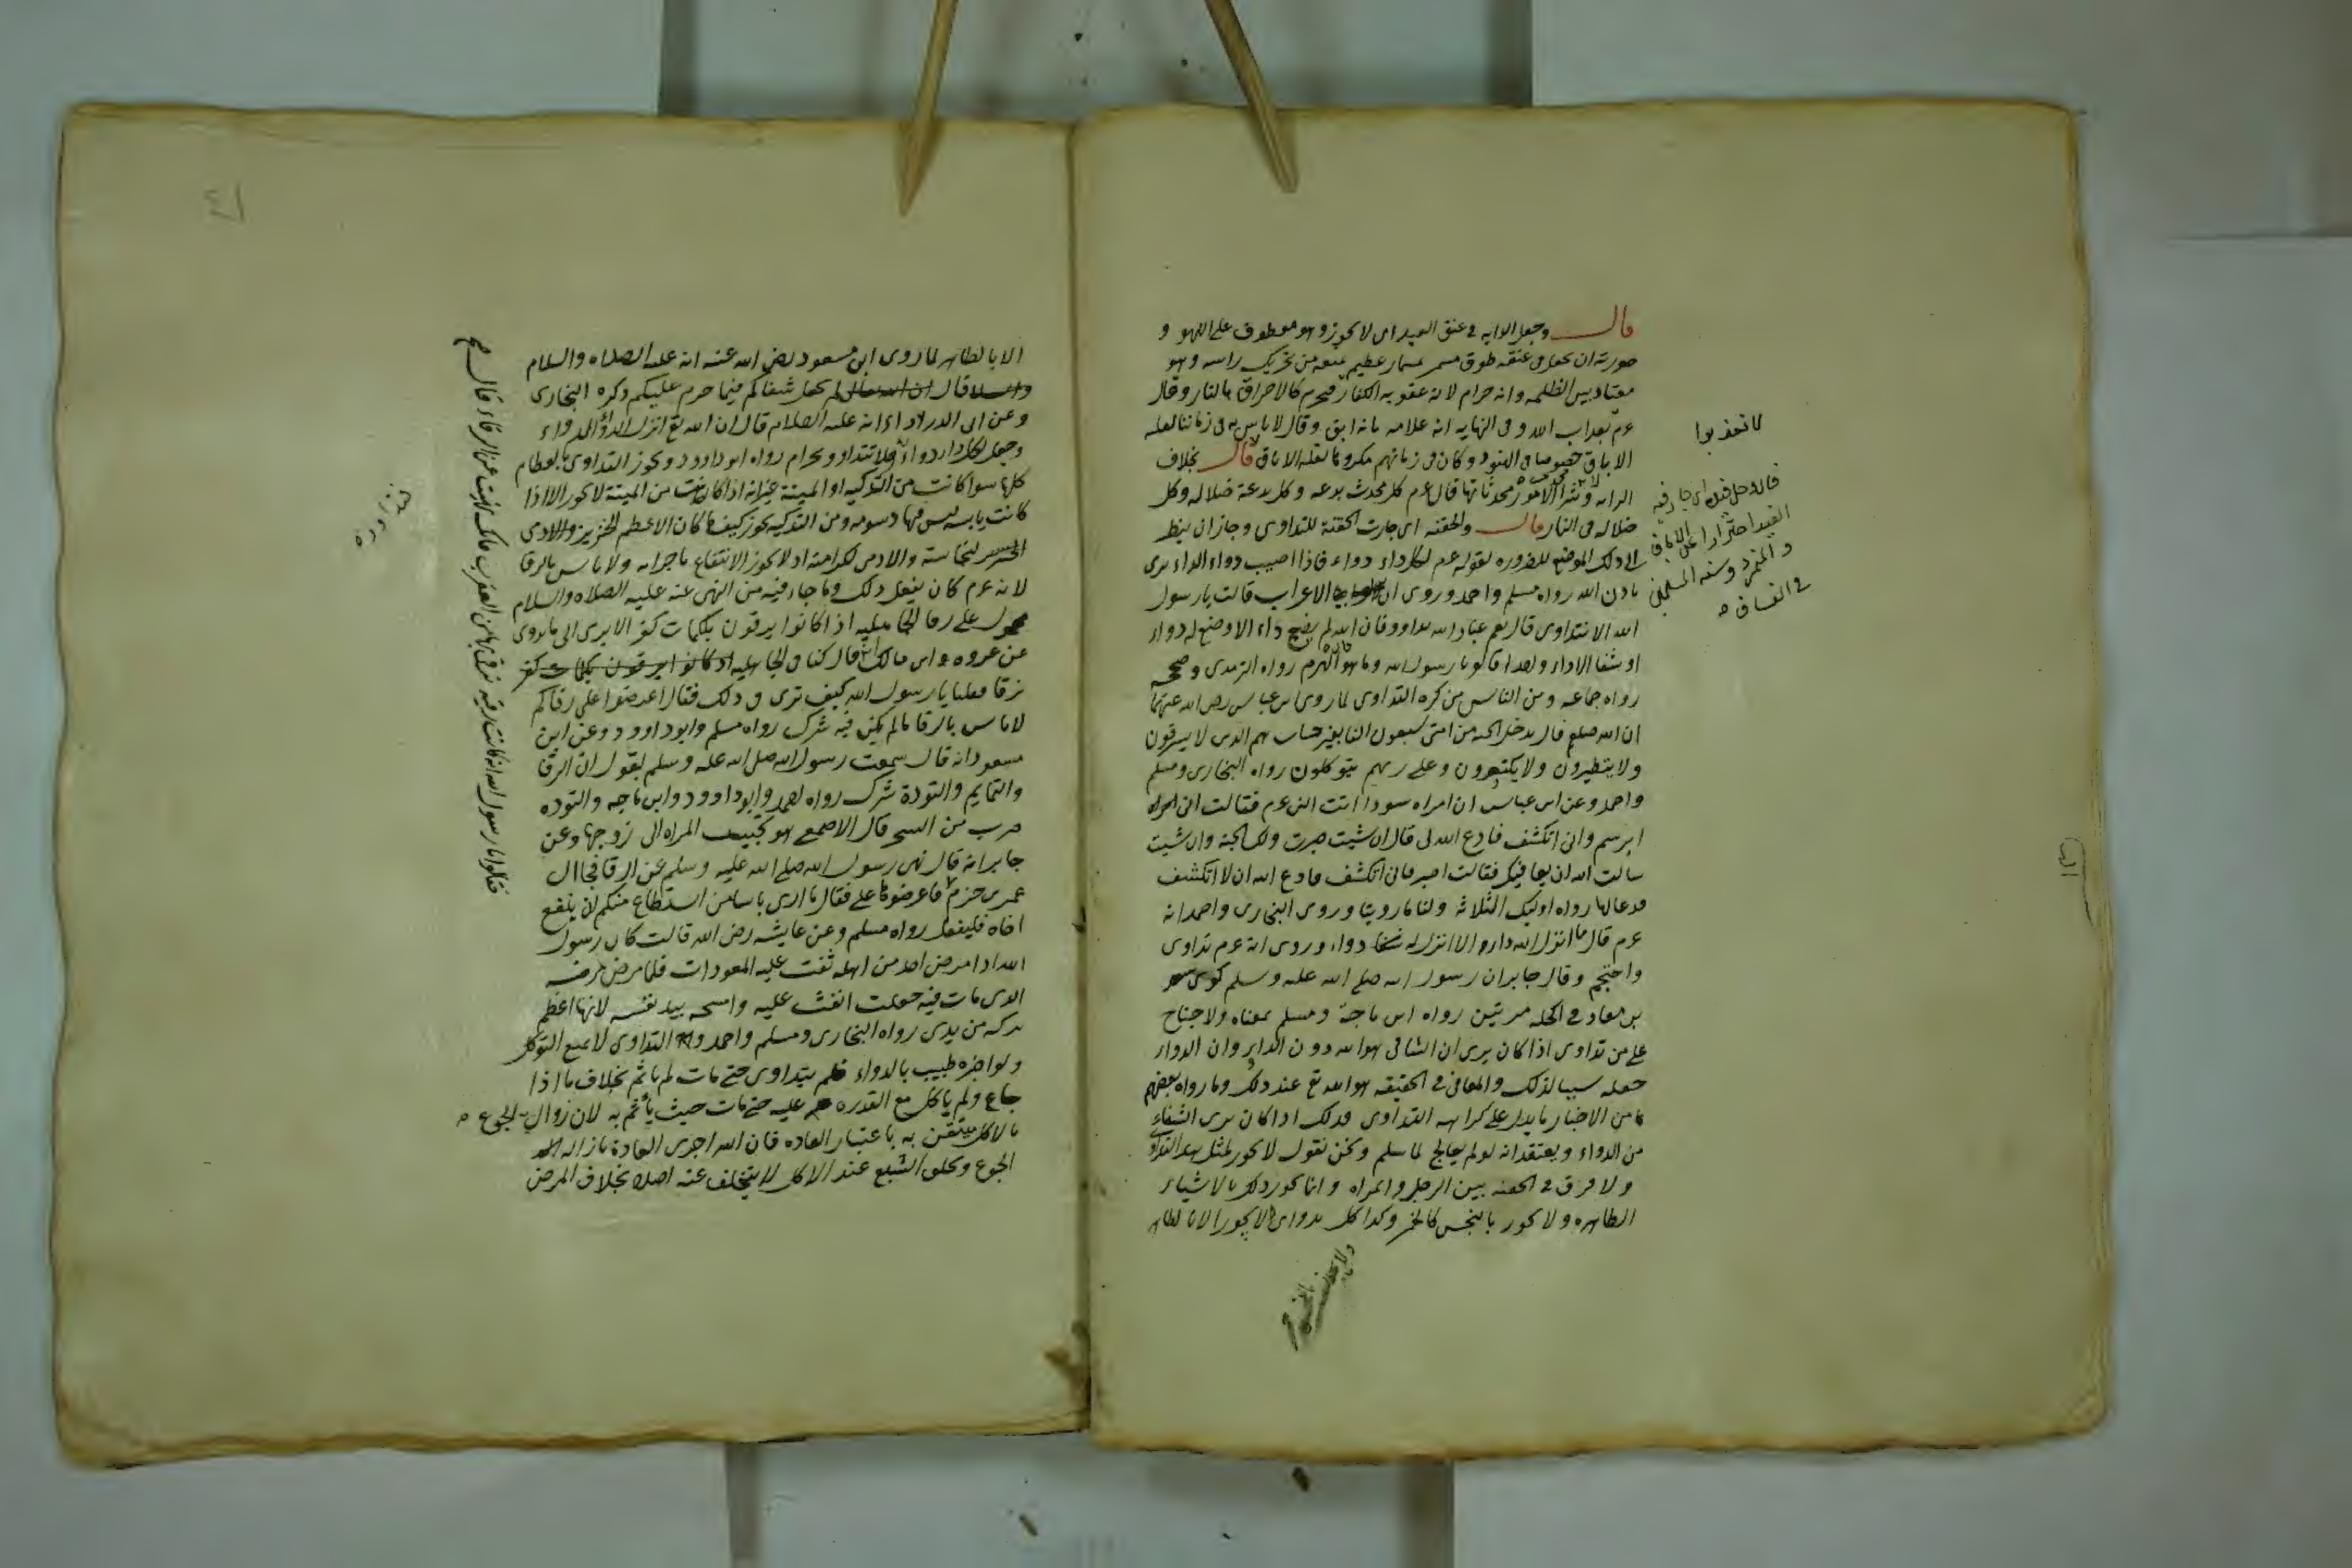 قال وجعل الرايه في عنق العبد اى لا يجوز وهو معطوف على اللهو و
صورته ان يجعل فى عنقه طوق مسمر بمسمار عظيم يمنعه من تحريك راسه وهو
معتاد بين الظلمه وانه حرام لانه عقوبه الكفار فيحرم كالاحراق بالنار وقال
عم بعداب الله وفى النهايه انه علامه بانه ابق وقال لا باس به فى زماننا لغلبه
الاباق خصوصا فى الهنود وكان فى زمانهم مكروها لقله الاباق قال بخلاف
الرايه وشر الامور محدثاتها قال عم كل محدث بدعه وكل بدعة ضلاله وكل
ضلاله فى النار قال والحقنه اى جازت الحقنة للتداوى وجاز ان ينظر
الى ذلك الموضع للضروره لقوله عم لكل داء دواء فاذا اصيب دواء الداء برى
بادن الله رواه مسلم واحمد وروى ان الاعراب قالت يا رسول
الله الا نتداوى قال نعم عباد الله تداووا فان الله لم يضع داء الا وضع له دواء
او شفا الا داء واحدا قالوا يا رسول الله وما هو قال الهرم رواه الترمدى وصححه
رواه جماعه ومن الناس من كره التداوى لما روى ابن عباس رضى الله عنهما
انه صلعم قال يدخل الجنه من امتى سبعون الفا بغير حساب هم الدين لا يسترقون
ولا يتطيرون ولا يكتوون وعلى ربهم يتوكلون رواه البخارى ومسلم
واحمد وعن ابن عباس ان امراه سودا اتت النبى عم فقالت انى امراه
اصرع وانى اتكشف فادع الله لى قال ان شيت صبرت ولك الجنة وان شيت
سالت الله ان يعافيك فقالت اصبر فانى اتكشف فادع الله ان لا اتكشف
فدعا لها رواه اوليك الثلاثة ولنا ما روينا وروى البخارى واحمد انه
عم قال ما انزل الله داء الا انزل له دواء وروى انه عم تداوى
واحتجم وقال جابر ان رسول الله صلى الله عليه وسلم كوى سعد
بن معاد في اكحله مرتين رواه ابن ماجة ومسلم بمعناه ولا جناح
على من تداوى اذا كان يرى ان الشافى هو الله دون الدواء وان الدواء
جعله سببا لذلك والمعافى في الحقيقه هو الله تع عند ذلك وما رواه بعضهم
من الاخبار ما يدل على كراهه التداوى فذلك اذا كان يرى الشفاء
من الدواء ويعتقد انه لو لم يعالج لما سلم ونحن نقول لا يجوز لمثل هدا التداوى
ولا فرق في الحقنه بين الرجل والمراه وانما يجوز ذلك بالاشياء
الطاهره ولا يجوز بالنجس كالخمر وكدا كل تداوى لا يجوز الا بالطاهر
لا تعذبوا
قال وحل قيده اى جاز فيه
القيد احترازا عن الاباق
و التمرد وسنه المسلمين
في الفساق
الا بالطاهر لما روى ابن مسعود رضى الله عنه انه عليه الصلاه والسلام
قال ان الله تعالى لم يجعل شفاكم فيما حرم عليكم ذكره البخارى
وعن ابى الدرداء انه عليه السلام قال ان الله تع انزل الداء والدواء
وجعل لكل داء دواء فلا تتداووا بحرام رواه ابو داوود ويجوز التداوى بالعظام
كلها سوا كانت من الذكيه او الميتة غير انه اذا كان من الميتة لا يجوز الا اذا
كانت يابسه ليس فيها دسومه ومن الذكيه يجوز كيف ما كان الا عظم الخنزير والادمى
الخنزير لنجاسته والادمى لكرامته اد لا يجوز الانتفاع باجزائه ولا باس بالرقا
لانه عم كان يفعل ذلك وما جاء فيه من النهى عنه عليه الصلاه والسلام
محمول على رقا الجاهليه اذ كانوا يرقون بكلمات كفر الا يرى الى ما روى
عن عروه بن مالك انه قال كنا فى الجاهليه اذ كانوا يرقون بكلمات كفر
نرقا فقلنا يا رسول الله كيف ترى فى ذلك فقال اعرضوا على رقاكم
لا باس بالرقا ما لم يكن فيه شرك رواه مسلم وابو داوود وعن ابن
مسعود انه قال سمعت رسول الله صلى الله عليه وسلم يقول ان الرقا
والتمايم والتودة شرك رواه احمد وابو داوود وابن ماجه والتوده
ضرب من السحر قال الاصمعى هو تحبيب المراه الى زوجها وعن
جابر انه قال نهى رسول الله صلى الله عليه وسلم عن الرقا فجا ال
عمر بن حزم فاعرضوها على فقال ما ارى باسا من استطاع منكم ان ينفع
اخاه فليفعل رواه مسلم وعن عايشه رضى الله قالت كان رسول
الله اذا مرض احد من اهله نفث عليه بالمعودات فلما مرض مرضه
الدى مات فيه جعلت انفث عليه وامسحه بيد نفسه لانها اعظم
بركه من يدى رواه البخارى ومسلم واحمد والتداوى لا يمنع التوكل
ولو اخبره طبيب بالدواء فلم يتداوى حتى مات لم ياثم بخلاف ما اذا
جاع ولم ياكل مع القدره عليه حتى مات حيث يأثم به لان زوال الجوع
بالاكل متيقن به باعتبار العاده فان الله اجرى العادة بازاله
الجوع وخلق الشبع عند الاكل لا يتخلف عنه اصلا بخلاف المرض